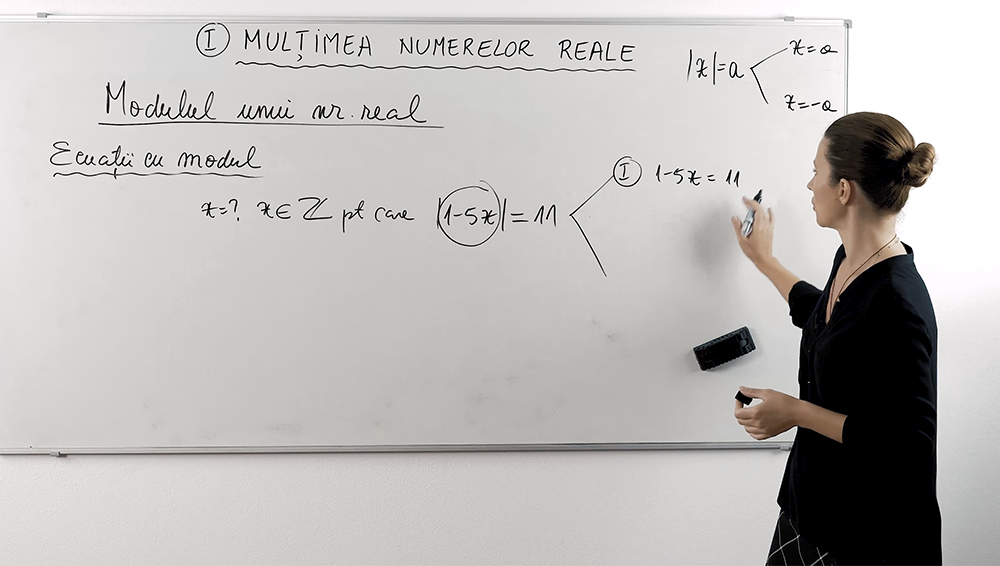 I MULȚIMEA NUMERELOR REALE
|x|=a
x=a
x=-a
Modulul unui nr. real
Ecuații cu modul
x=? x∈ℤ pt care |1-5x|=11
I 1-5x=11